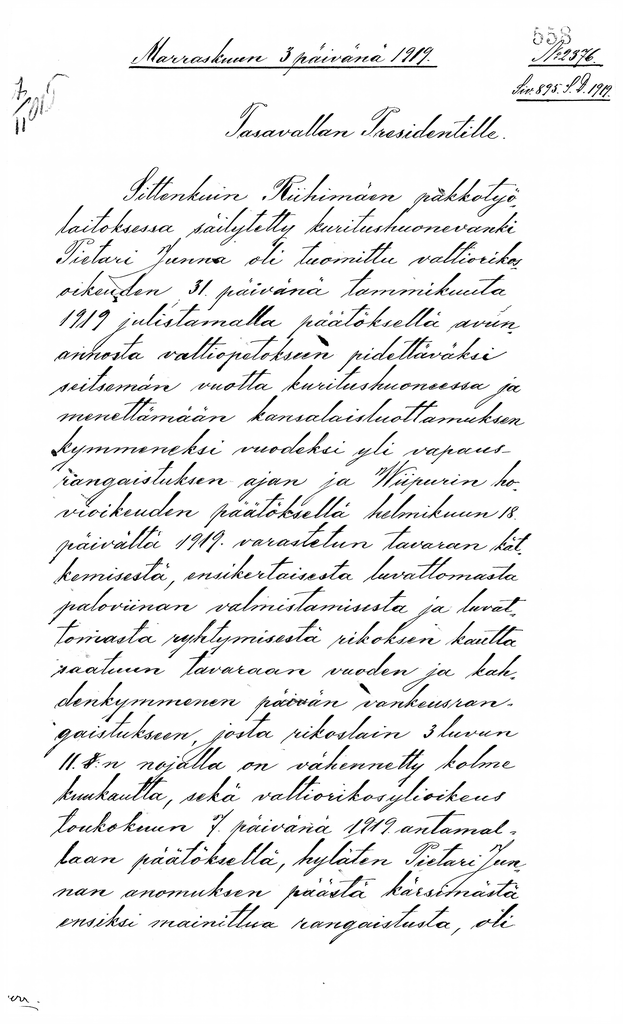 558
Marraskuun 3 päivänä 1919.
No 2376.
Siv. 895. S.D. 1919.
Tasavallan Presidentille.
Sittenkuin Riihimäen pakkotyö-
laitoksessa säilytetty kuritushuonevanki
Pietari Junna oli tuomittu valtiorikos
oikeuden 31. päivänä tammikuuta
1919 julistamalla päätöksellä avun-
annosta valtiopetokseen pidettäväksi
seitsemän vuotta kuritushuoneessa ja
menettämään kansalaisluottamuksen
kymmeneksi vuodeksi yli vapaus-
rangaistuksen ajan ja Wiipurin ho-
vioikeuden päätöksellä helmikuun 18
päivältä 1919. varastetun tavaran kät-
kemisestä, ensikertaisesta luvattomasta
paloviinan valmistamisesta ja luvat-
tomasta ryhtymisestä rikoksen kautta
saatuun tavaraan vuoden ja kah-
denkymmenen päivän vankeusran-
gaistukseen, josta rikoslain 3 luvun
11. §:n nojalla on vähennetty kolme
kuukautta, sekä valtiorikosylioikeus
toukokuun 7. päivänä 1919 antamal-
laan päätöksellä, hyläten Pietari Jun-
nan anomuksen päästä kärsimästä
ensiksi mainittua rangaistusta, oli